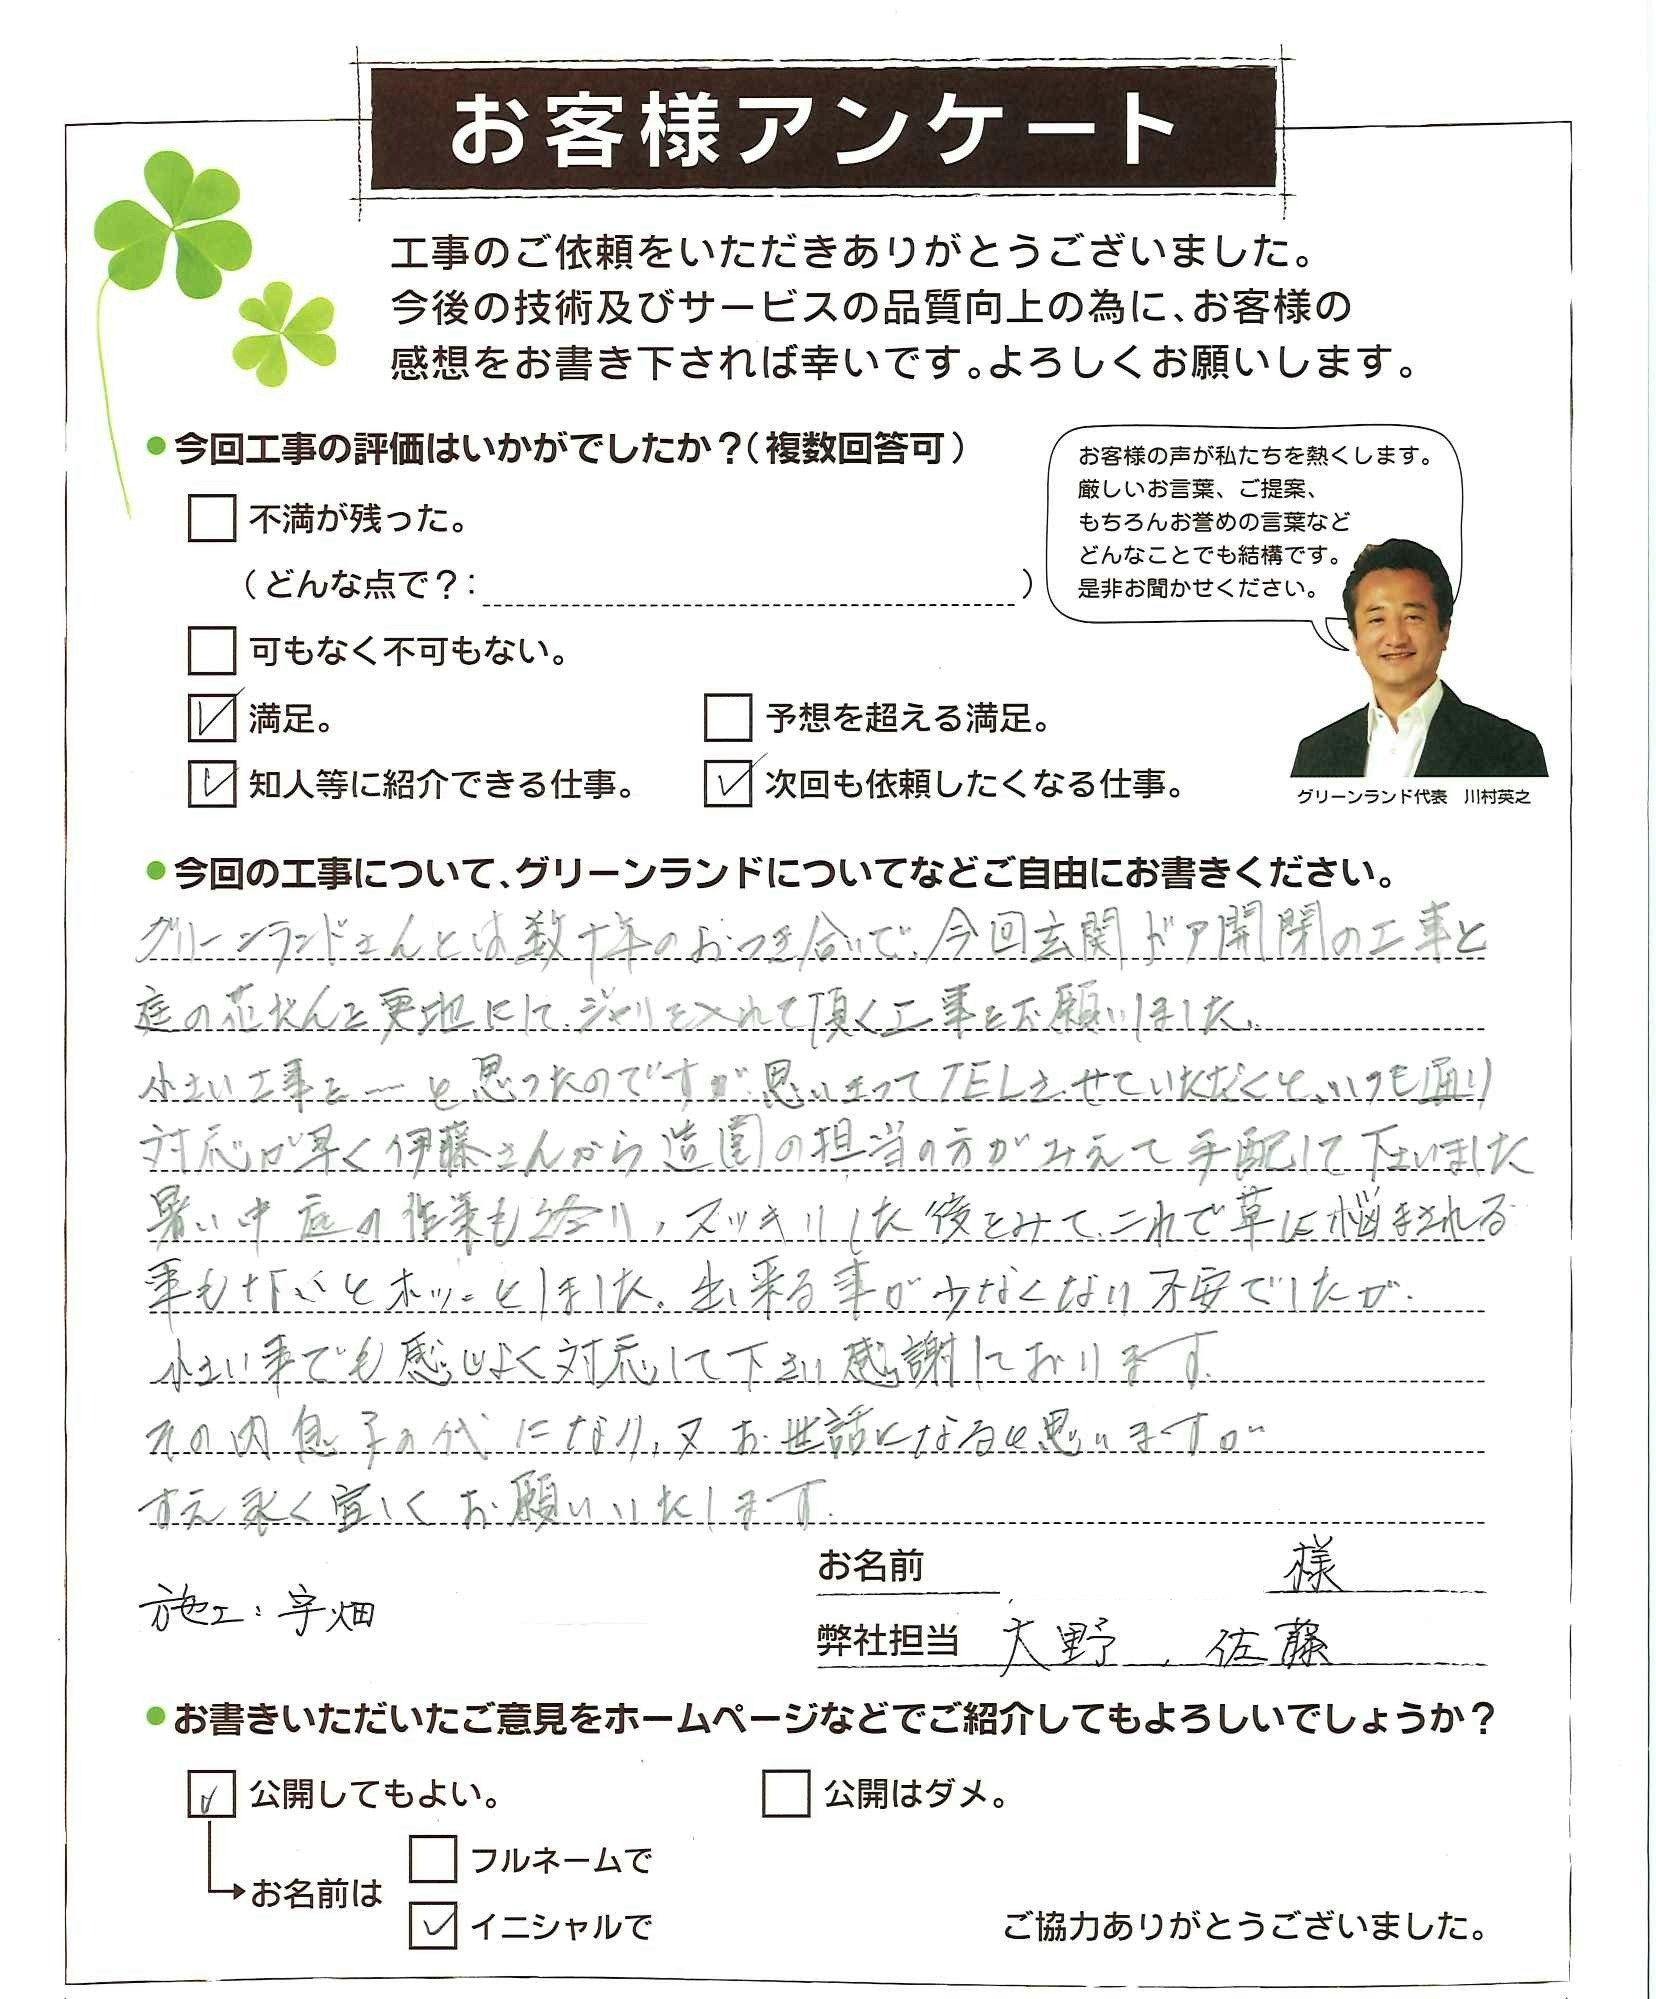 お客様アンケート
工事のご依頼をいただきありがとうございました。
今後の技術及びサービスの品質向上の為に、お客様の
感想をお書き下されば幸いです。よろしくお願いします。
●今回工事の評価はいかがでしたか？(複数回答可)
不満が残った。
(どんな点で？:　)
可もなく不可もない。
満足。
予想を超える満足。
知人等に紹介できる仕事。
次回も依頼したくなる仕事。
お客様の声が私たちを熱くします。
厳しいお言葉、ご提案、
もちろんお誉めの言葉など
どんなことでも結構です。
是非お聞かせください。
グリーンランド代表　川村英之
●今回の工事について、グリーンランドについてなどご自由にお書きください。
グリーンランドさんとは数十年のおつき合いで、今回玄関ドア開閉の工事と
庭の花だんを更地にして、ジャリを入れて頂く工事をお願いしました。
小さい工事を…と思ったのですが思いきってTELさせていただくと、いつも通り
対応が早く伊藤さんから造園の担当の方がみえて手配して下さいました
暑い中庭の作業も終り、スッキリした後をみて、これで草に悩まされる
事もなくとホッとしました。出来る事が少なくなり不安でしたが、
小さい事でも感じよく対応して下さい感謝しております。
その内息子の代になり、又お世話になると思いますが
すえ永く宜しくお願いいたします。
お名前　様
施工：宇畑
弊社担当 大野、佐藤
●お書きいただいたご意見をホームページなどでご紹介してもよろしいでしょうか？
公開してもよい。
公開はダメ。
お名前は
フルネームで
イニシャルで
ご協力ありがとうございました。